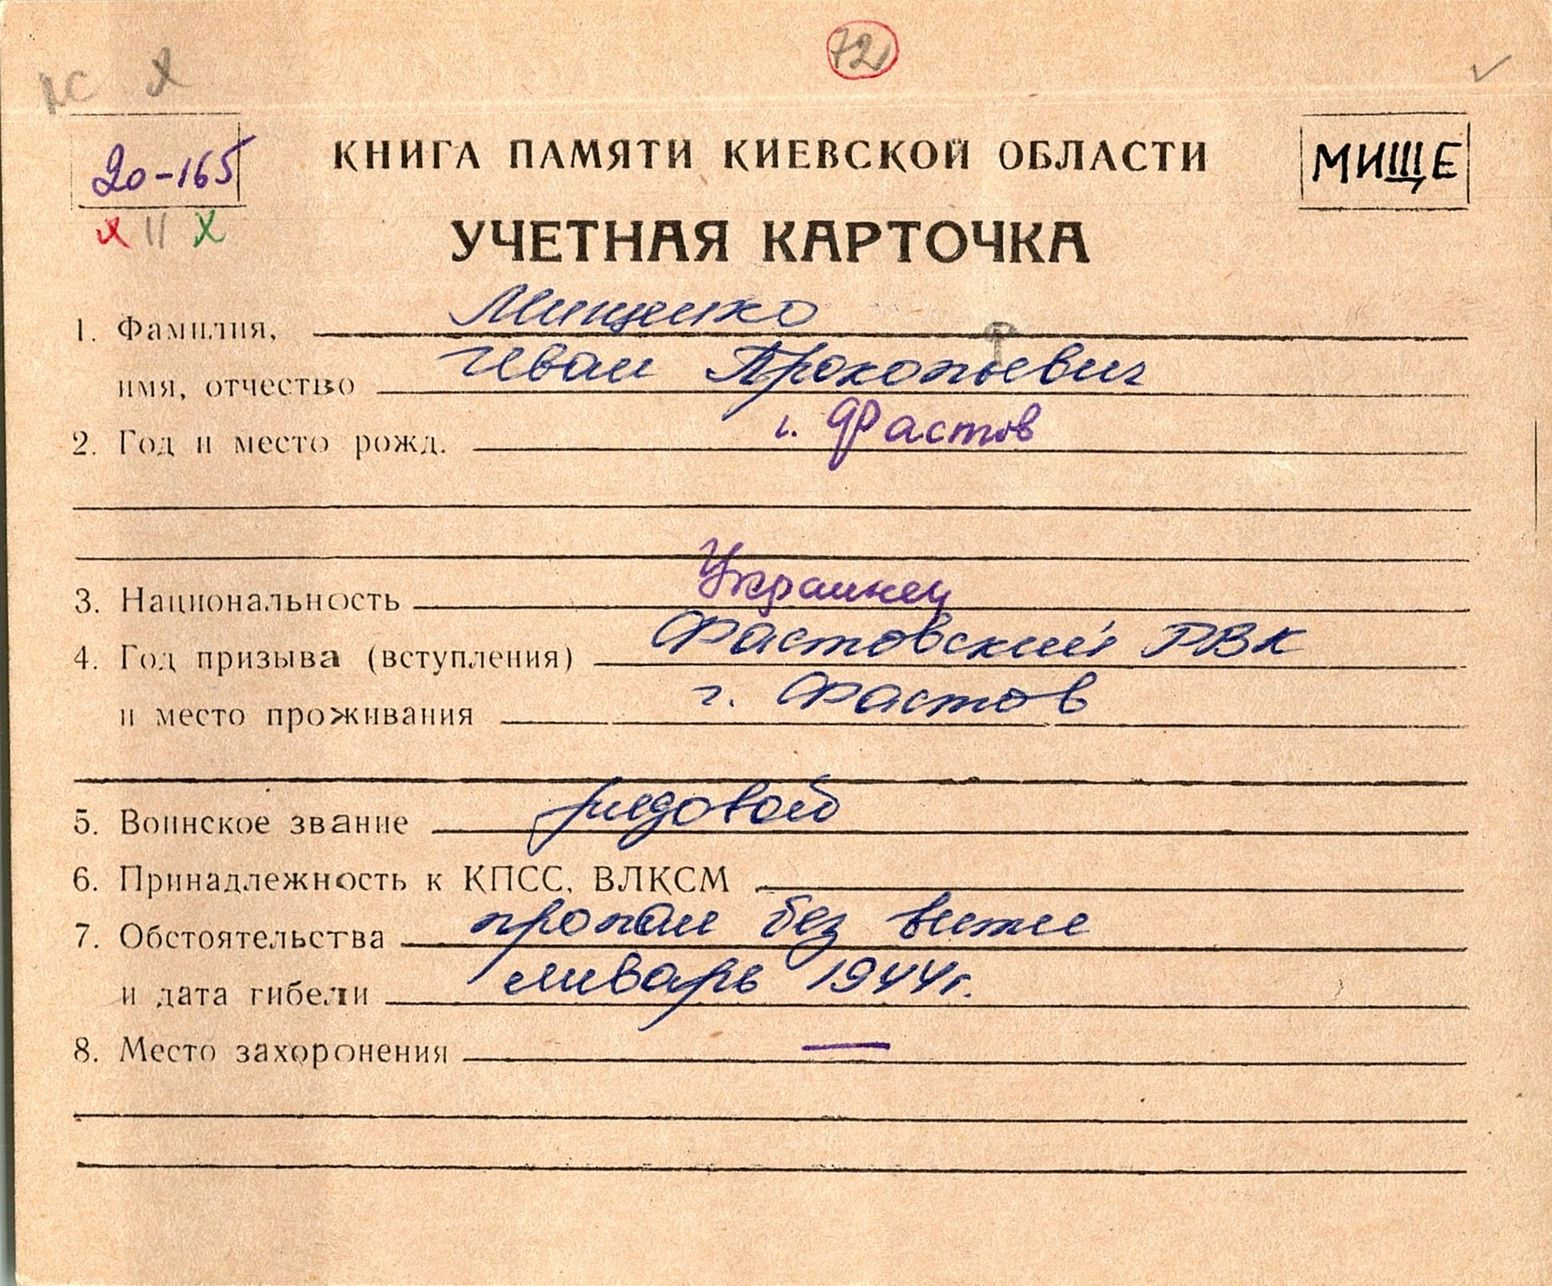 72
20-165
КНИГА ПАМЯТИ КИЕВСКОЙ ОБЛАСТИ
МИЩЕ
УЧЕТНАЯ КАРТОЧКА
1. Фамилия, Мищенко
имя, отчество Иван Прокопьевич
2. Год и место рожд. г. Фастов
3. Национальность Украинец
4. Год призыва (вступления) Фастовский РВК
и место проживания г. Фастов
5. Воинское звание рядовой
6. Принадлежность к КПСС, ВЛКСМ
7. Обстоятельства пропал без вести
и дата гибели январь 1944г.
8. Место захоронения —